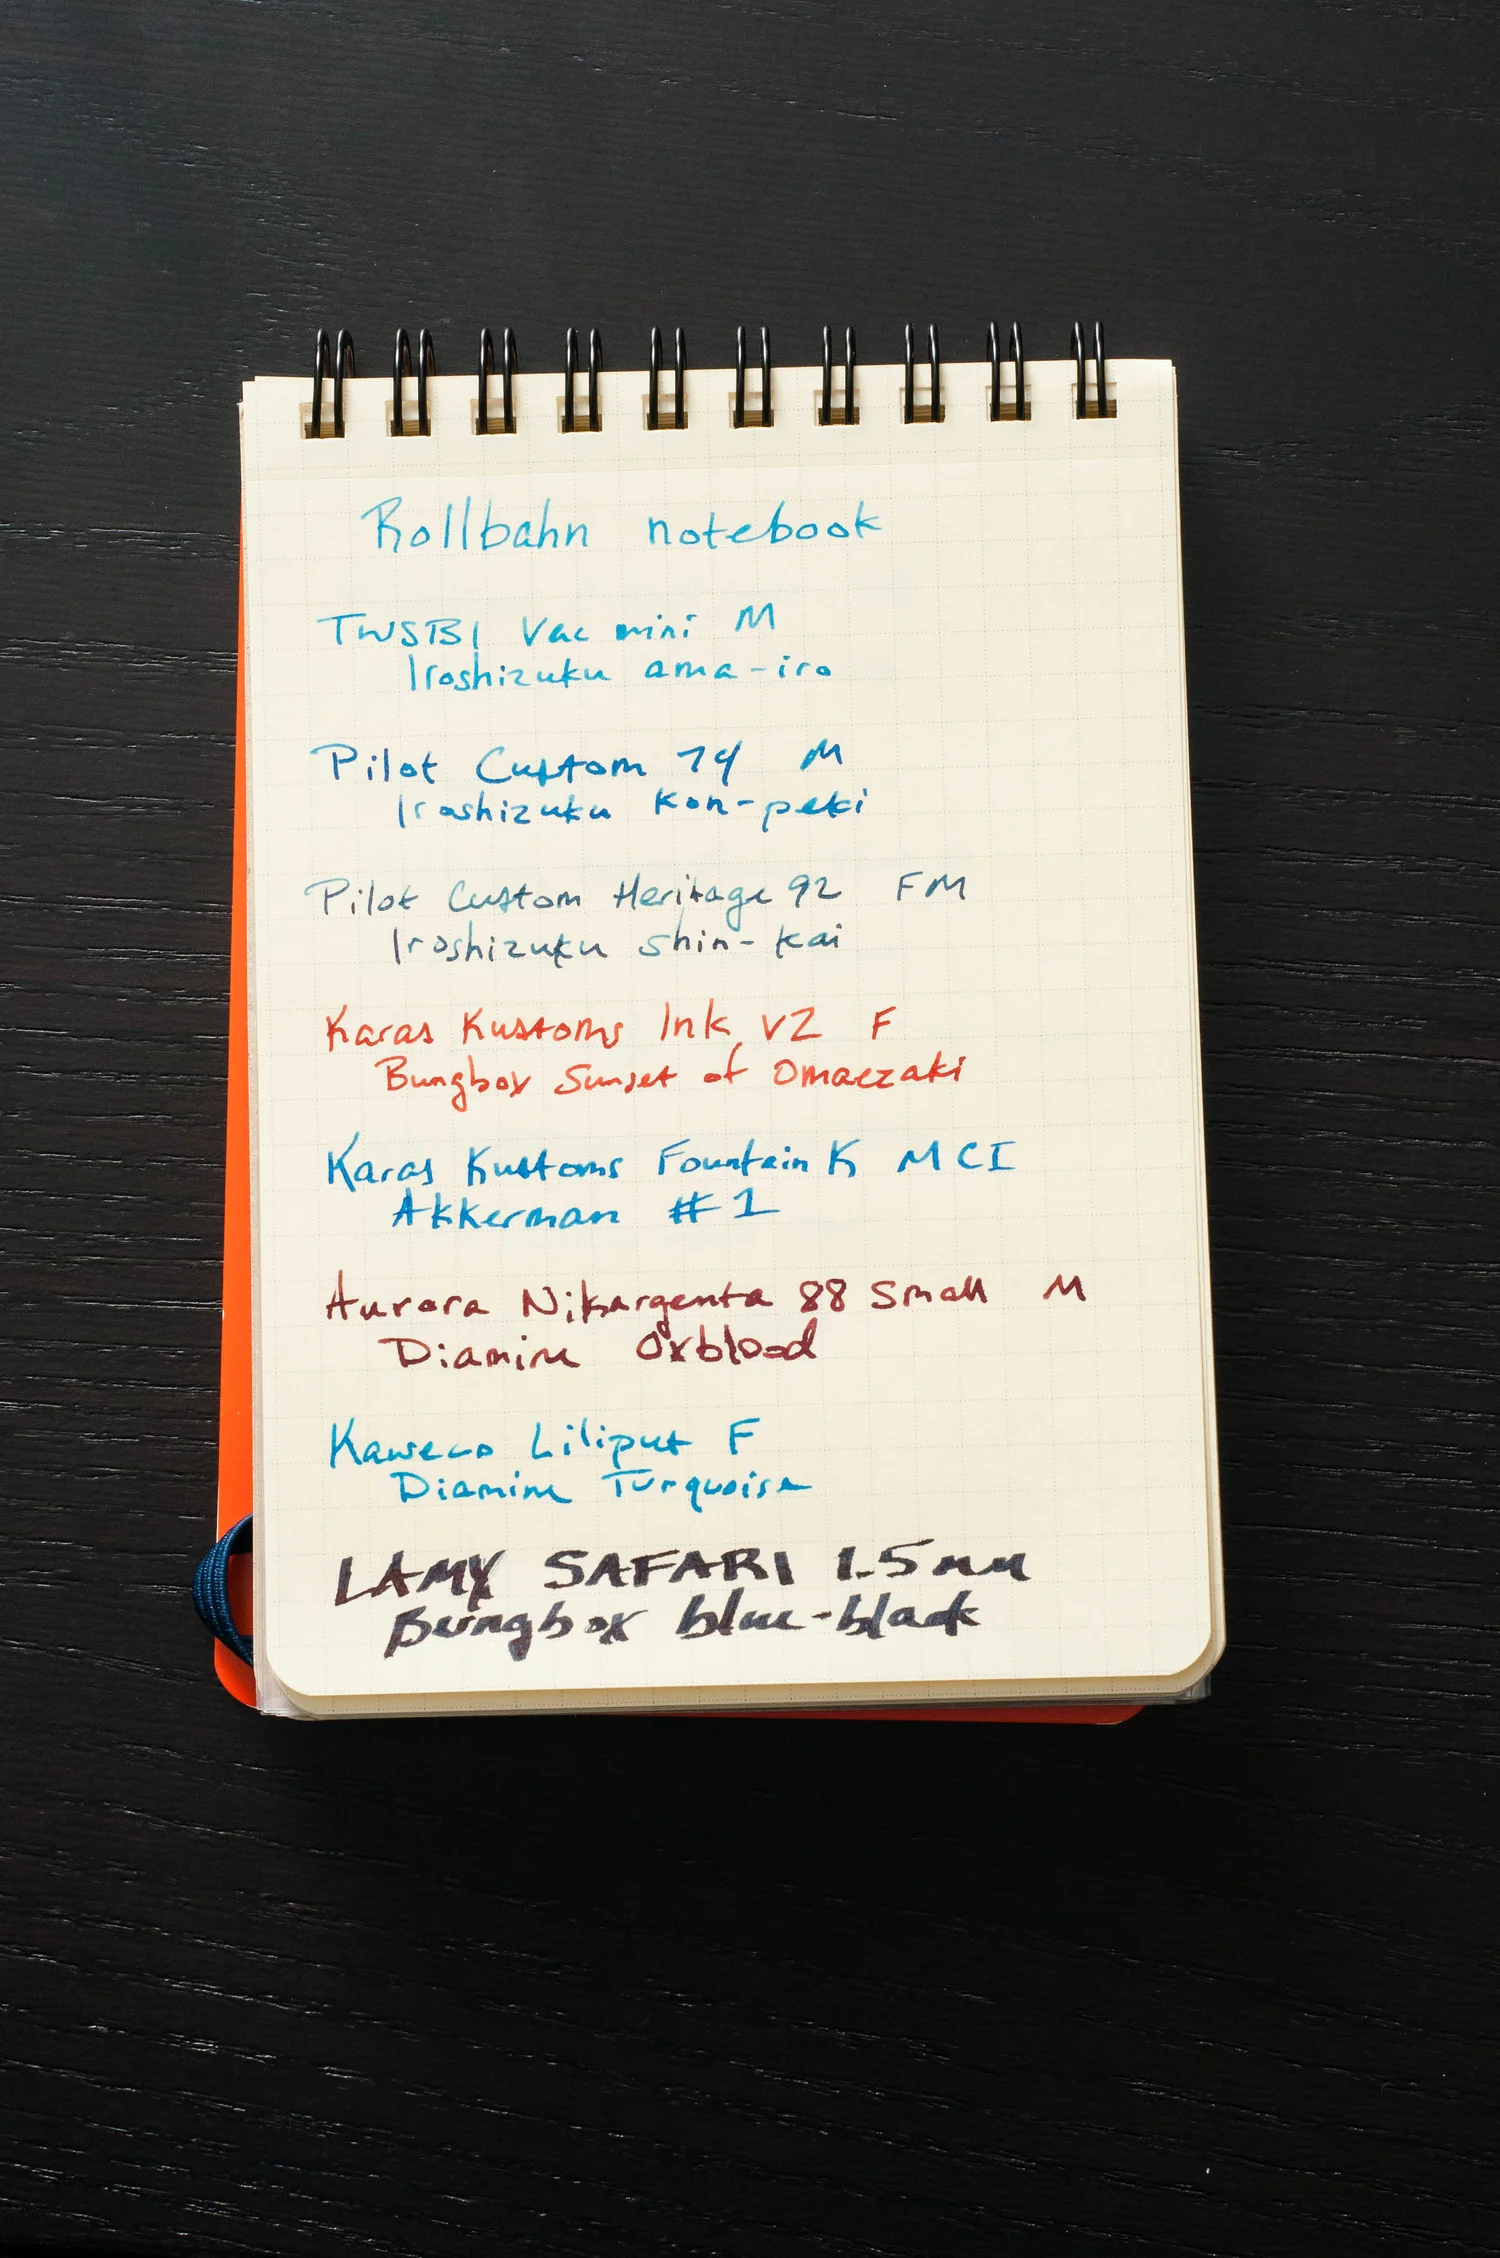 Rollbahn notebook
TWSBI Vac mini M
Iroshizuku ama-iro
Pilot Custom 74 M
Iroshizuku Kon-peki
Pilot Custom Heritage 92 FM
Iroshizuku shin-kai
Karas Kustoms Ink V2 F
Bungbox Sunset of Omaezaki
Karas Kustoms Fountain K MCI
Akkerman #1
Aurora Nikargenta 88 Small M
Diamine Oxblood
Kaweco Liliput F
Diamine Turquoise
LAMY SAFARI 1.5mm
Bungbox blue-black